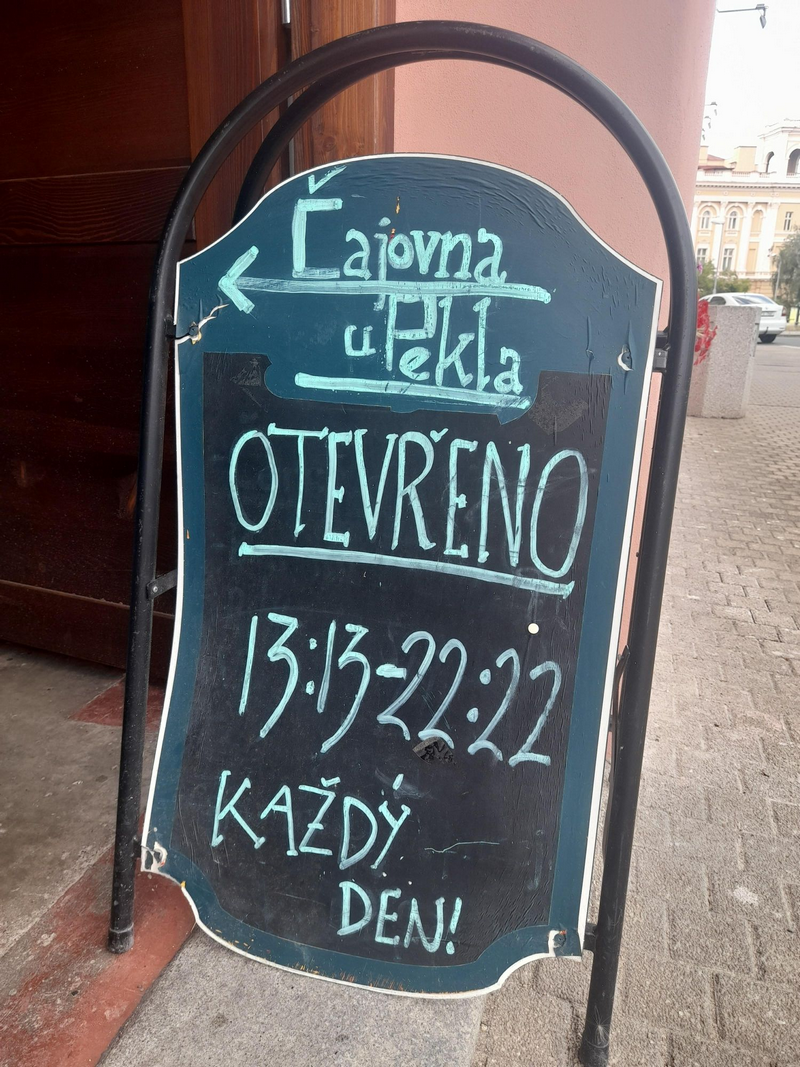 Čajovna
u Pekla
OTEVŘENO
13:13-22:22
KAŽDÝ
DEN!